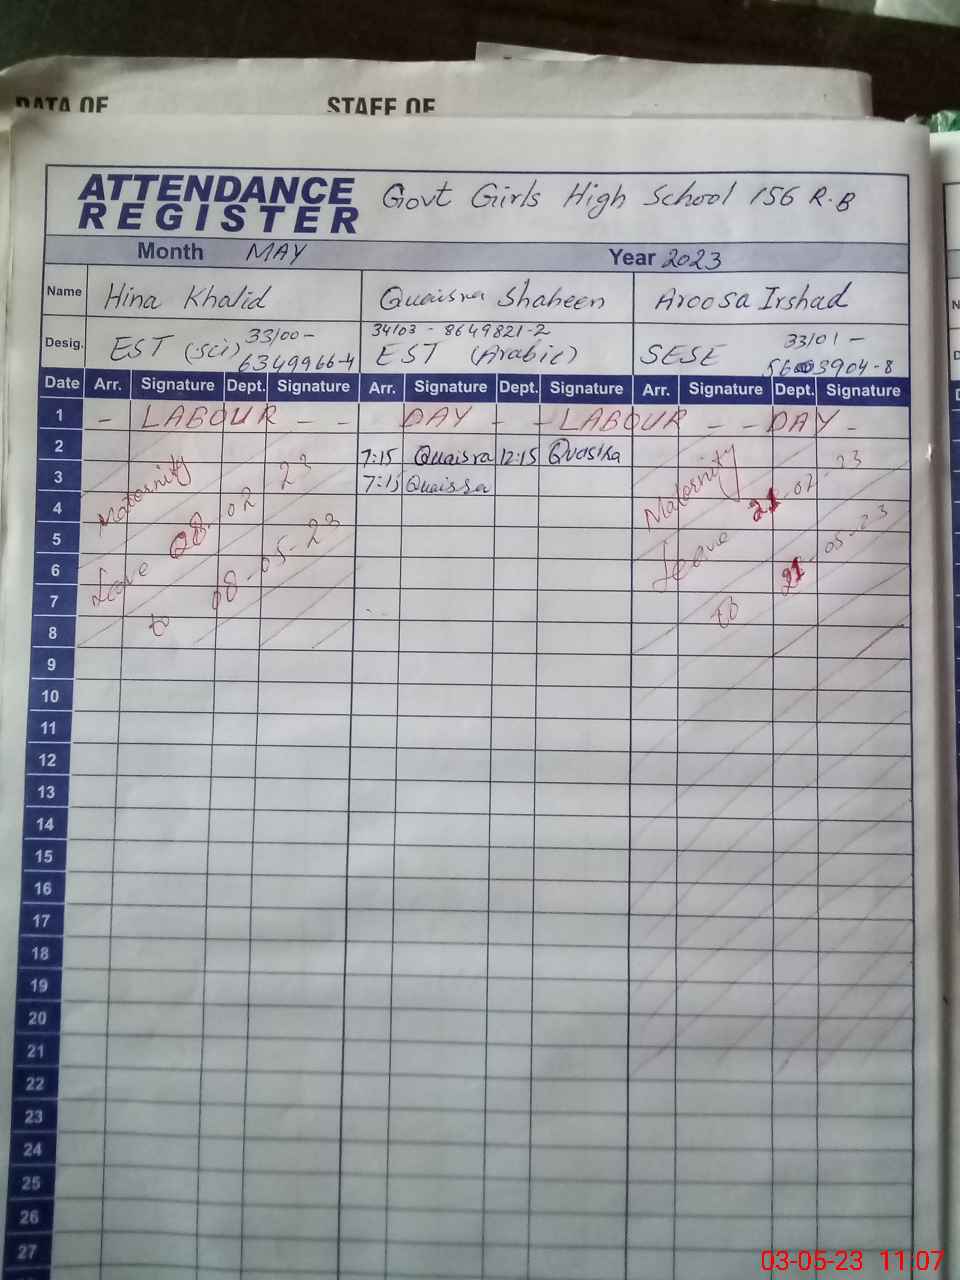 DATA OF STAFF OF
ATTENDANCE
REGISTER
Govt Girls High School 156 R.B
Month MAY Year 2023
Name Hina Khalid Quaisra Shaheen Aroosa Irshad
Desig. EST (Sci) 33/00 - 6349966-4
34103 - 8649821-2
EST (Arabic)
SESE 33/01 -
Date Arr. Signature Dept. Signature Arr. Signature Dept. Signature Arr. Signature Dept. Signature
1 - LABOUR - - DAY - - LABOUR - - DAY -
2 7:15 Quaisra 12:15
3 7:15 Quaisra
4
5
6
7
8
Maternity
Leave 08-02 23
to 08-05-23
Maternity
Leave 21-02-23
to 21-05-23
9
10
11
12
13
14
15
16
17
18
19
20
21
22
23
24
25
26
27
03-05-23 11:07